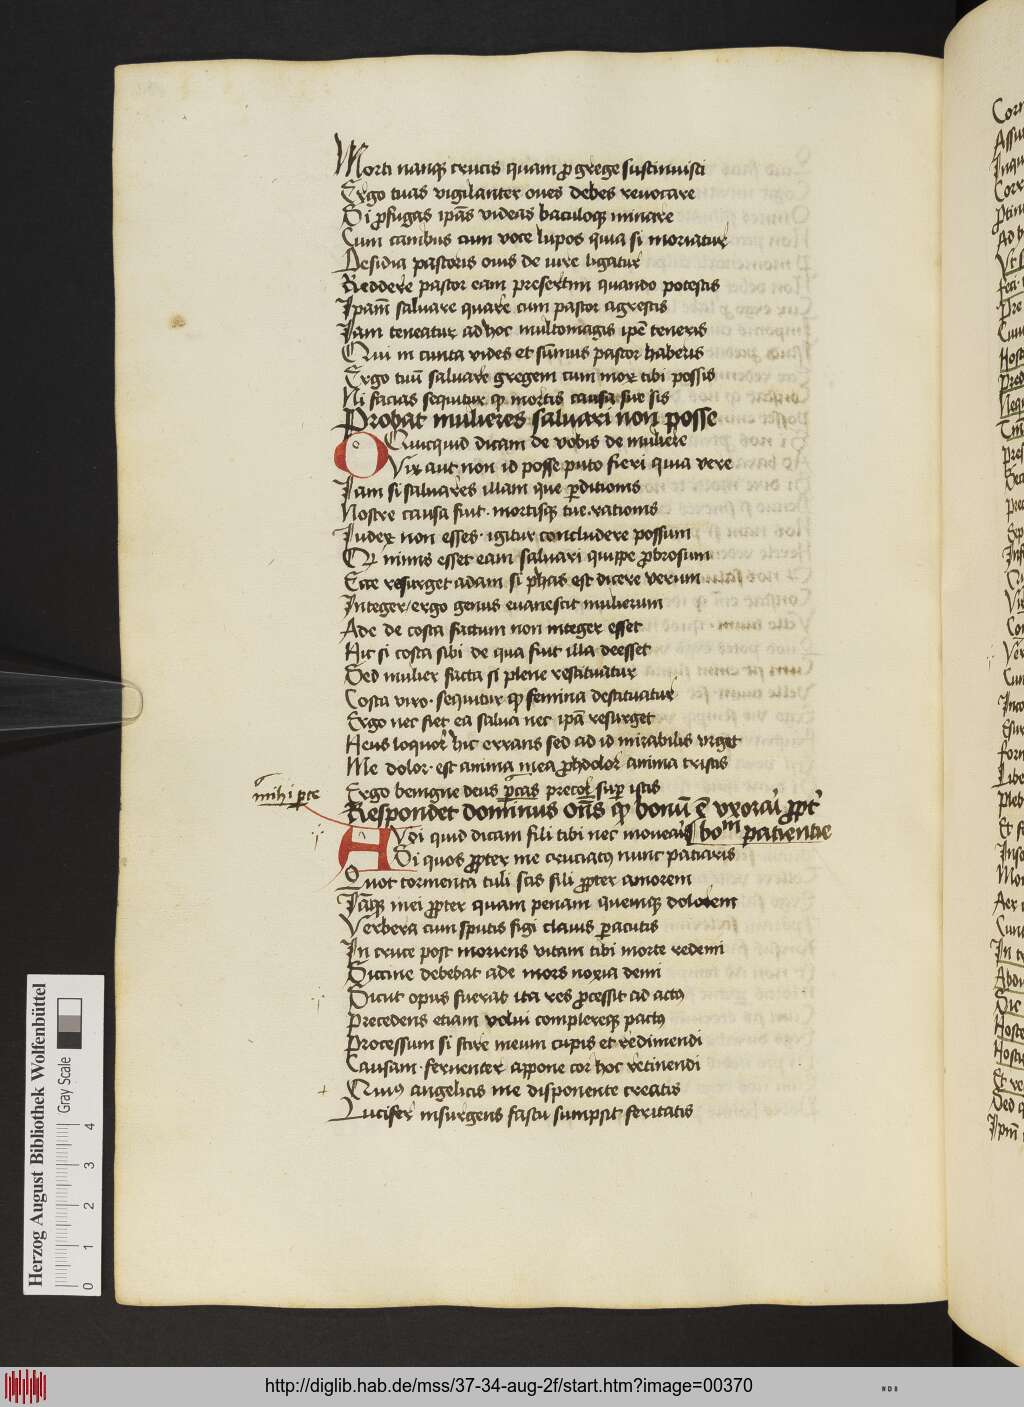 Morti nanq crucis quam p grege sustinuisti
Ergo tuas vigilanter oues debes reuocare
Si pfugas ipās videas baculoq minare
Cum canibus cum voce lupos quia si moriatur
Desidia pastoris ouis de iure ligatur
Reddere pastor eam presertim quando potestis
Ipam saluare quare cum pastor agrestis
Iam teneatur ad hoc multomagis ipē teneris
Qui in cunta vides et sūmus pastor haberis
Ergo tuū saluare gregem cum mox tibi possis
Ni facias sequitur q mortis causa sue sis
Probat mulieres saluari non posse
O Quicquid dicam de vobis de muliere
Vir aut non id posse puto fieri quia vere
Iam si saluares illam que pditionis
Nostre causa fuit. mortisq tue. rationis
Iudex non esses. igitur concludere possum
Q nimis esset eam saluari quippe pbrosum
Ecce resurget adam si phas est dicere verum
Integer/ergo genus euanescit mulierum
Ade de costa factum non integer esset
Hic si costa sibi de qua fuit illa deesset
Sed mulier facta si plene restituatur
Costa viro. sequitur q femina destituatur
Ergo nec fiet ea salua nec ipā resurget
Heus loquor hic errans sed ad id mirabilis vrget
Me dolor. est anima mea phdolor anima tristis
Ergo benigne deus pcas precor sup istis
mihi pce
Respondet dominus oūs q bonū ē vxorari ppt
A Vdi quid dicam fili tibi nec mouearis bom patientie
Si quos ppter me cruciatus nunc patiaris
Quot tormenta tuli scis fili ppter amorem
Iāq mei ppter quam penam quemq dolorem
Verbera cum sputis figi clauis pacutis
In cruce post moriens vitam tibi morte redemi
Siccine debebat ade mors noxia demi
Sicut opus fuerat ita res pcessit ad actus
Precedens etiam volui complereq pactus
Processum si scire meum cupis et redimendi
Causam. feruenter appone cor hoc retinendi
Quius angelicis me disponente creatis
Lucifer insurgens fastu sumpsit feritatis
Herzog August Bibliothek Wolfenbüttel
Gray Scale
0 1 2 3 4
http://diglib.hab.de/mss/37-34-aug-2f/start.htm?image=00370